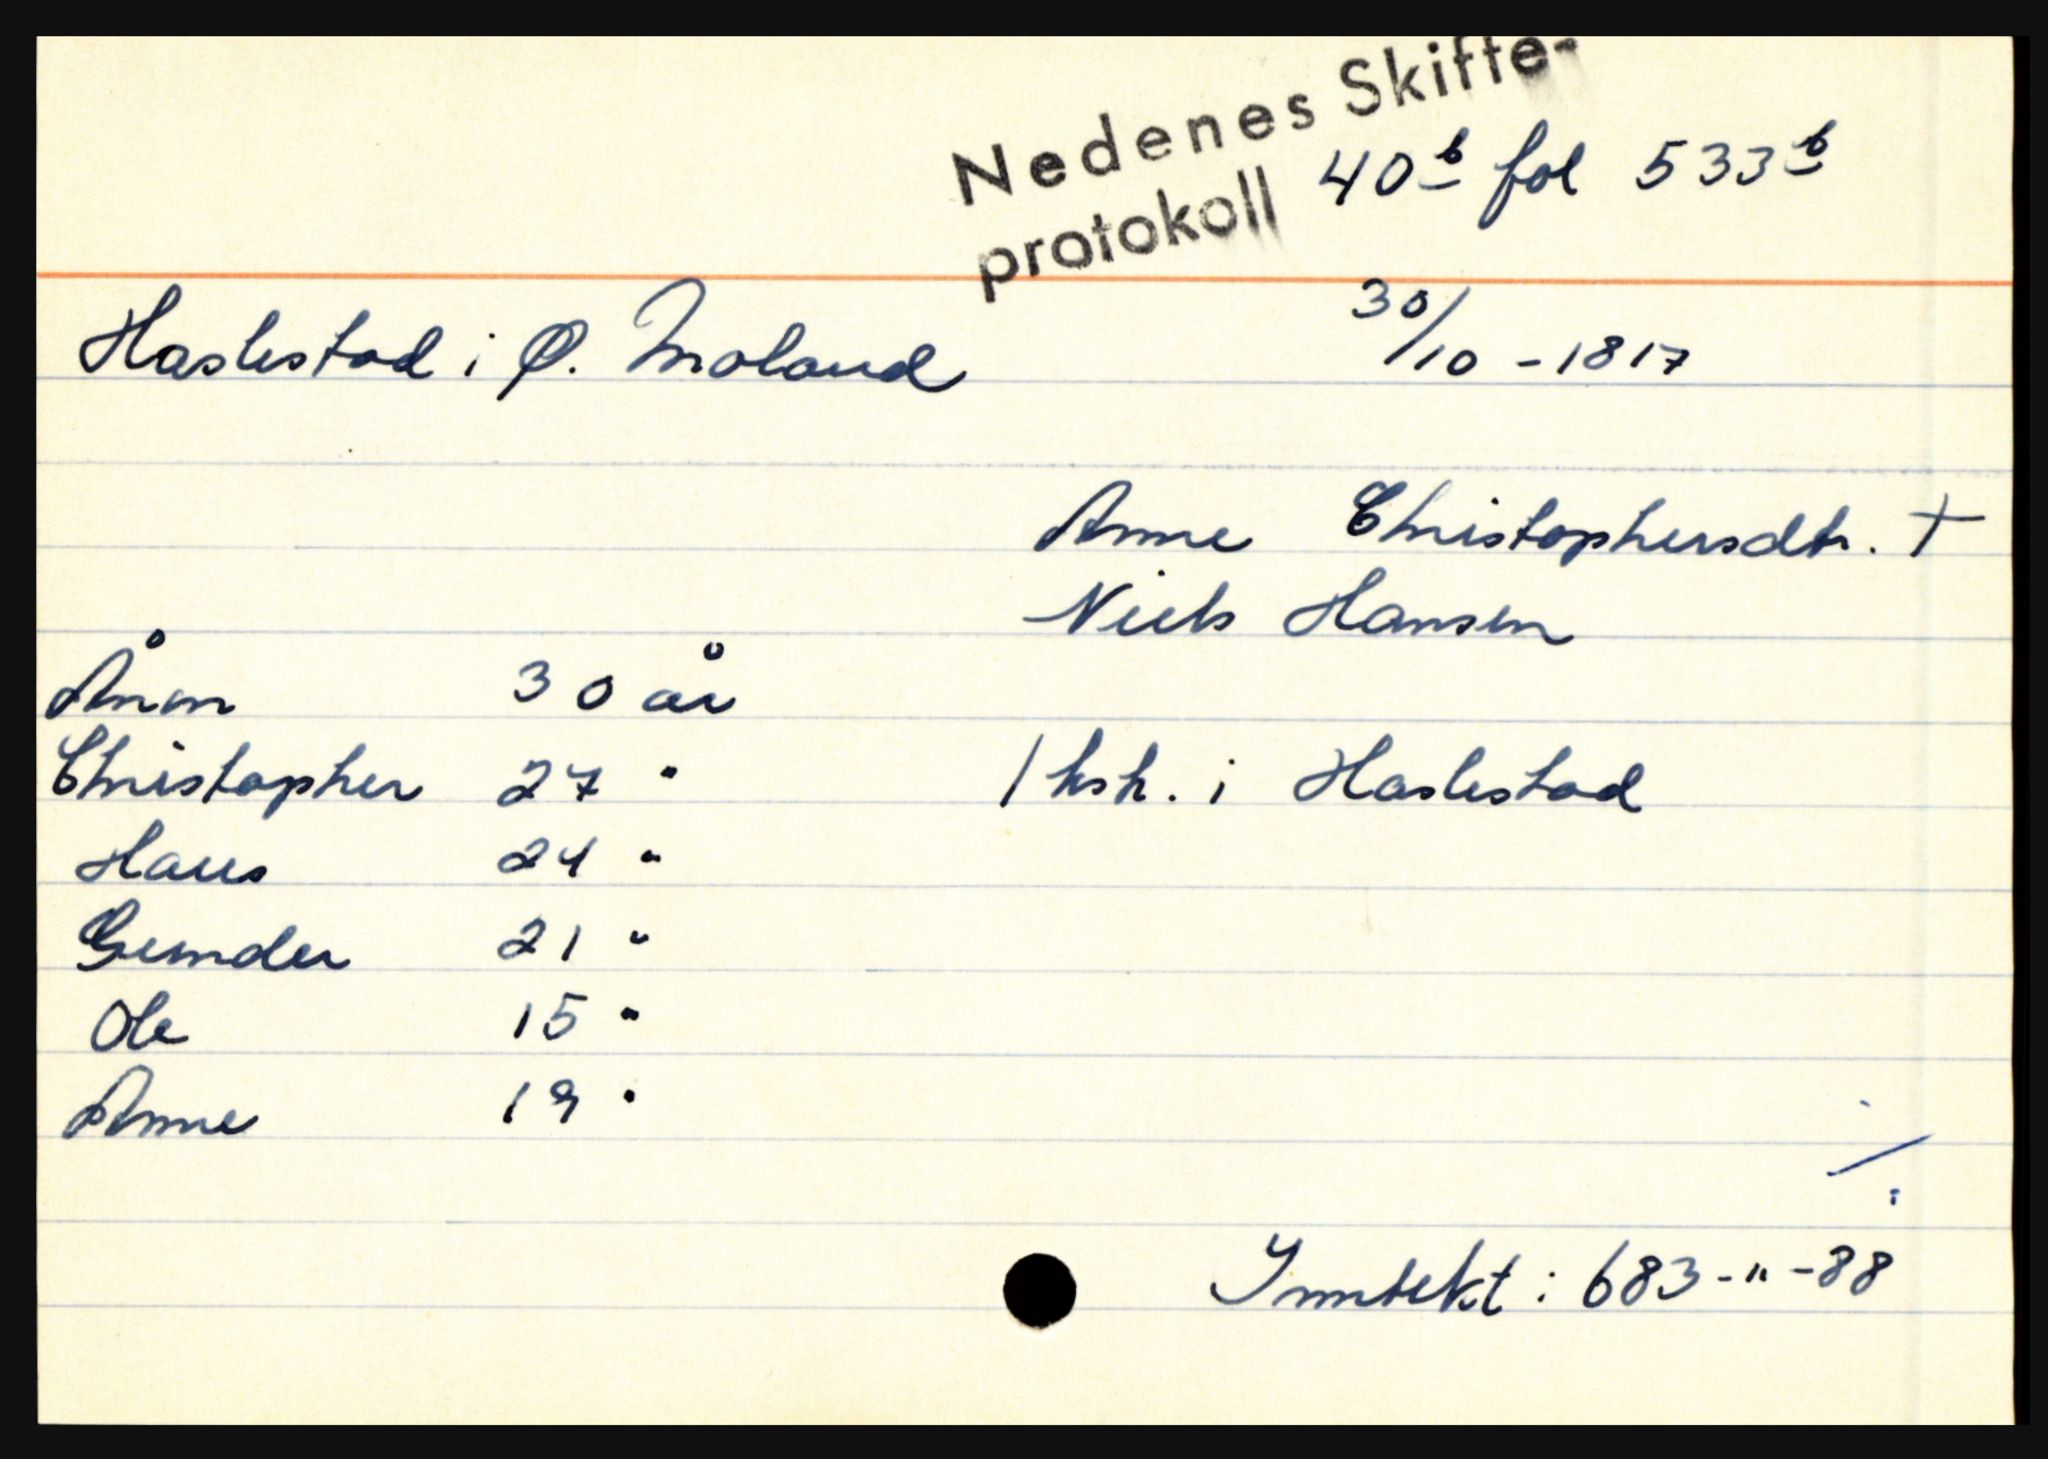 Nedenes Skifte-
protokoll 40b fol 533b
Haslestad i Ø. Moland 30/10 - 1817
Anne Christophersdtr. †
Niels Hansen
Ånon 30 år
Christopher 27 " 1 hsh. i Haslestad
Hans 24 "
Gunder 21 "
Ole 15 "
Anne 19 "
Inntekt: 683-"-88